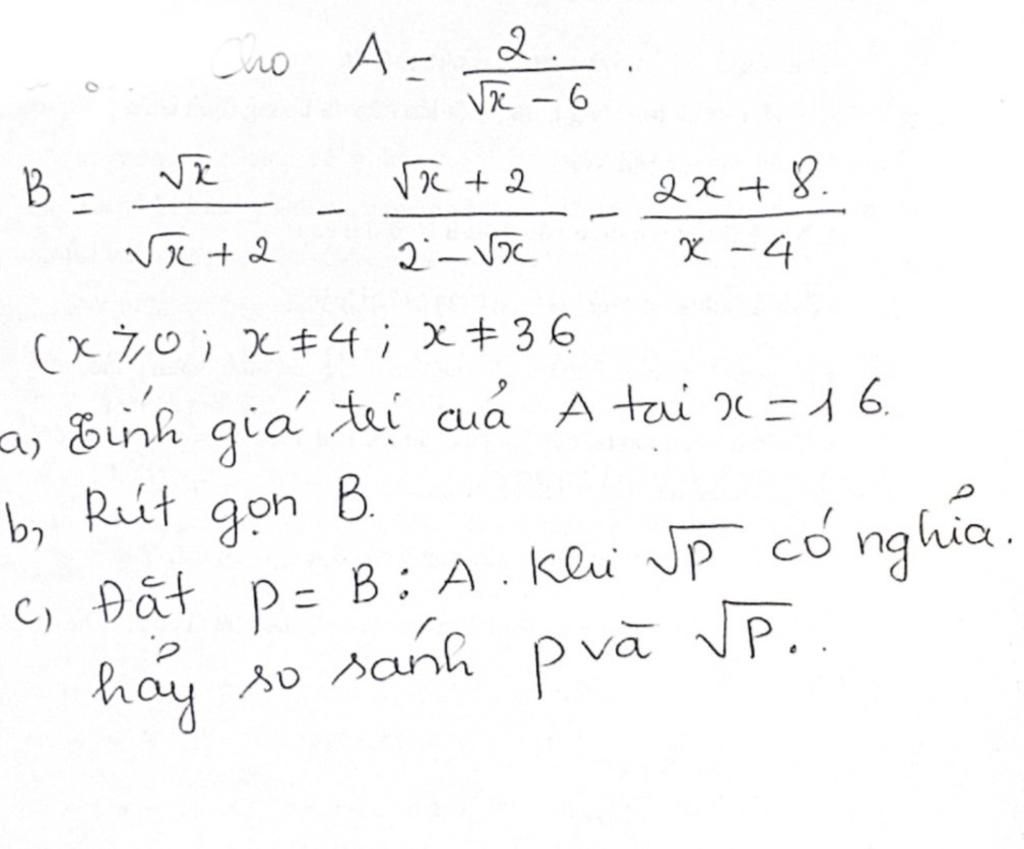 Cho A = 2/(√x - 6).
B = √x/(√x + 2) - (√x + 2)/(2 - √x) - (2x + 8)/(x - 4)
(x ⩾ 0; x ≠ 4; x ≠ 36
a, Tính giá trị của A tại x = 16.
b, Rút gọn B.
c, Đặt P = B : A. Khi √P có nghĩa.
hãy so sánh P và √P..